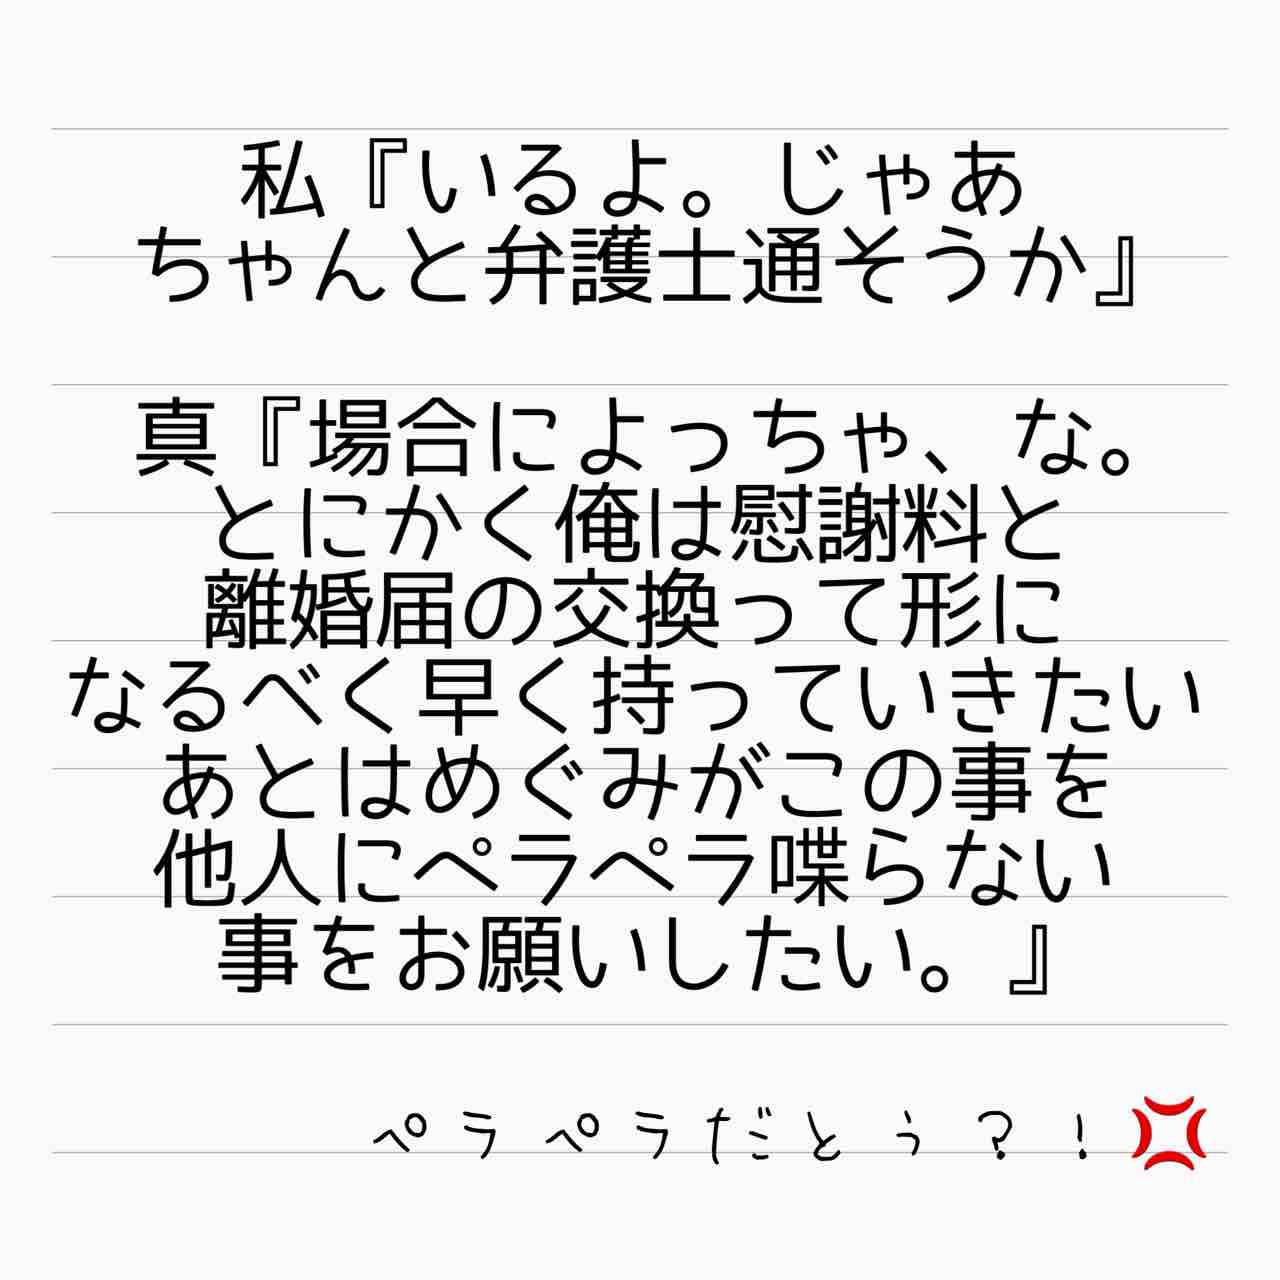 私『いるよ。じゃあ
ちゃんと弁護士通そうか』
真『場合によっちゃ、な。
とにかく俺は慰謝料と
離婚届の交換って形に
なるべく早く持っていきたい
あとはめぐみがこの事を
他人にペラペラ喋らない
事をお願いしたい。』
ペラペラだとぅ?!💢